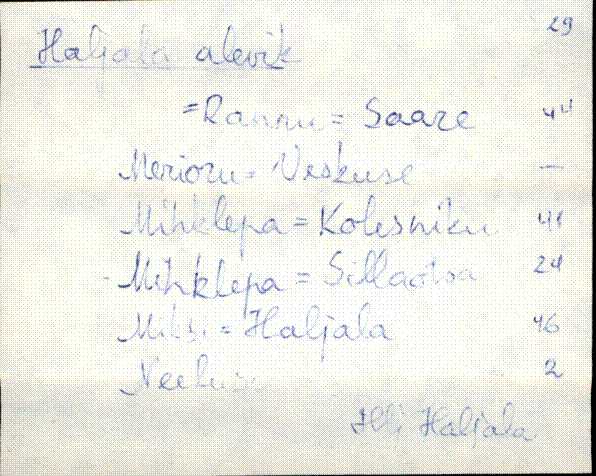 29
Haljala alevik
=Rannu= Saare 44
Merioru= Veskuse —
Mihklepa=Kolesniku 41
Mihklepa= Sillaotsa 24
Miksi= Haljala 46
2
Haljala